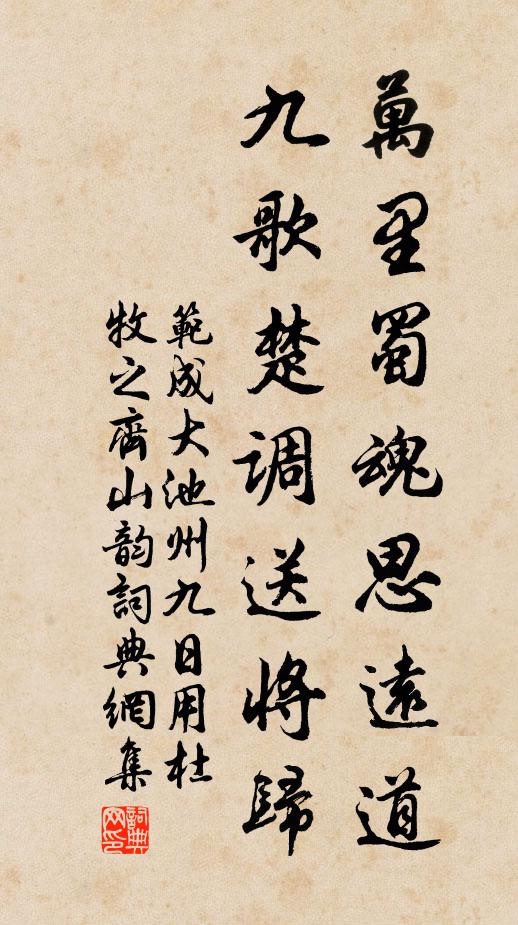 萬里蜀魂思遠道
九歌楚調送將歸
範成大池州九日用杜
牧之齊山韵詞典網集
詞典
网印